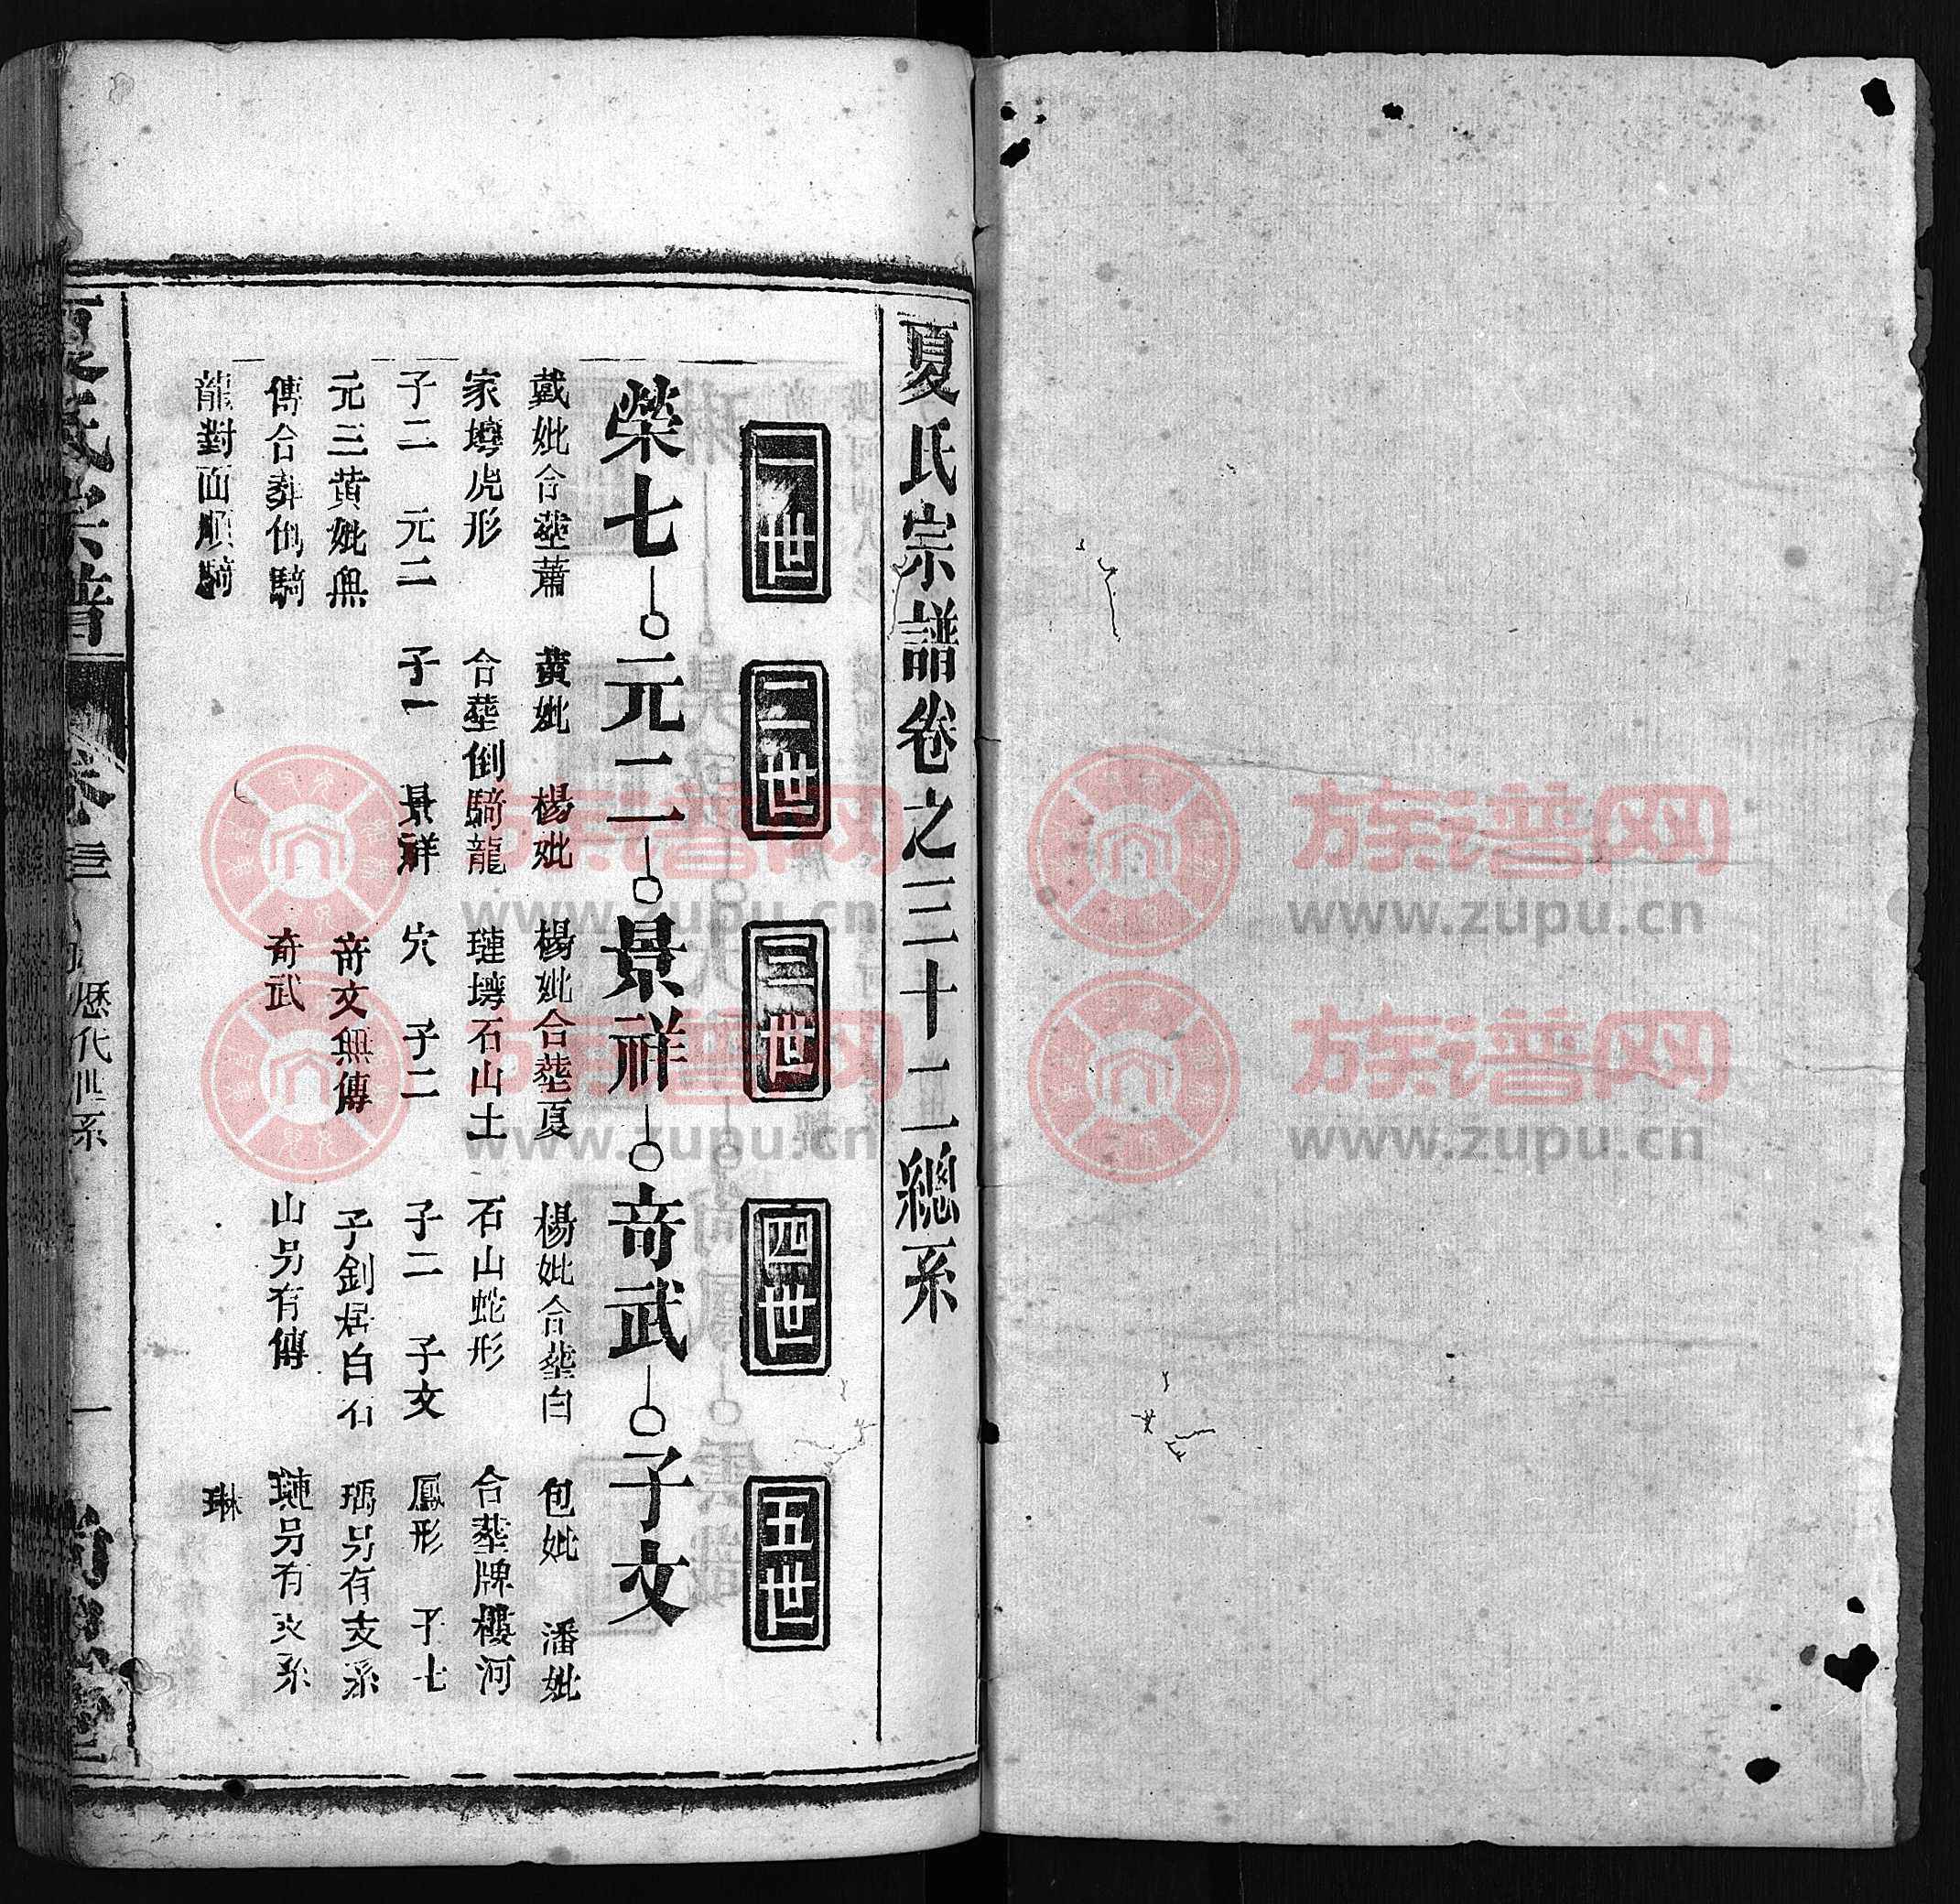 夏氏宗譜卷之三十二總系
一世
二世
三世
四世
五世
榮七 元二 景祥 奇武 子文
戴妣合塟蕭
家塆虎形
子二 元二
元三黃妣無
傳合葬倒騎
龍對面順騎
黃妣 楊妣
合塟倒騎龍
子一 景祥
楊妣合塟夏
璉塆石山土
穴 子二
奇文無傳
奇武
楊妣合塟白
石山蛇形
子二 子文
子釗居白石
山另有傳
包妣 潘妣
合塟牌樓河
鳳形 子七
瑀另有支系
璉另有支系
琳
夏氏宗譜
歷代世系
一
族谱网
www.zupu.cn
族谱网
www.zupu.cn
族谱网
www.zupu.cn
族谱网
www.zupu.cn